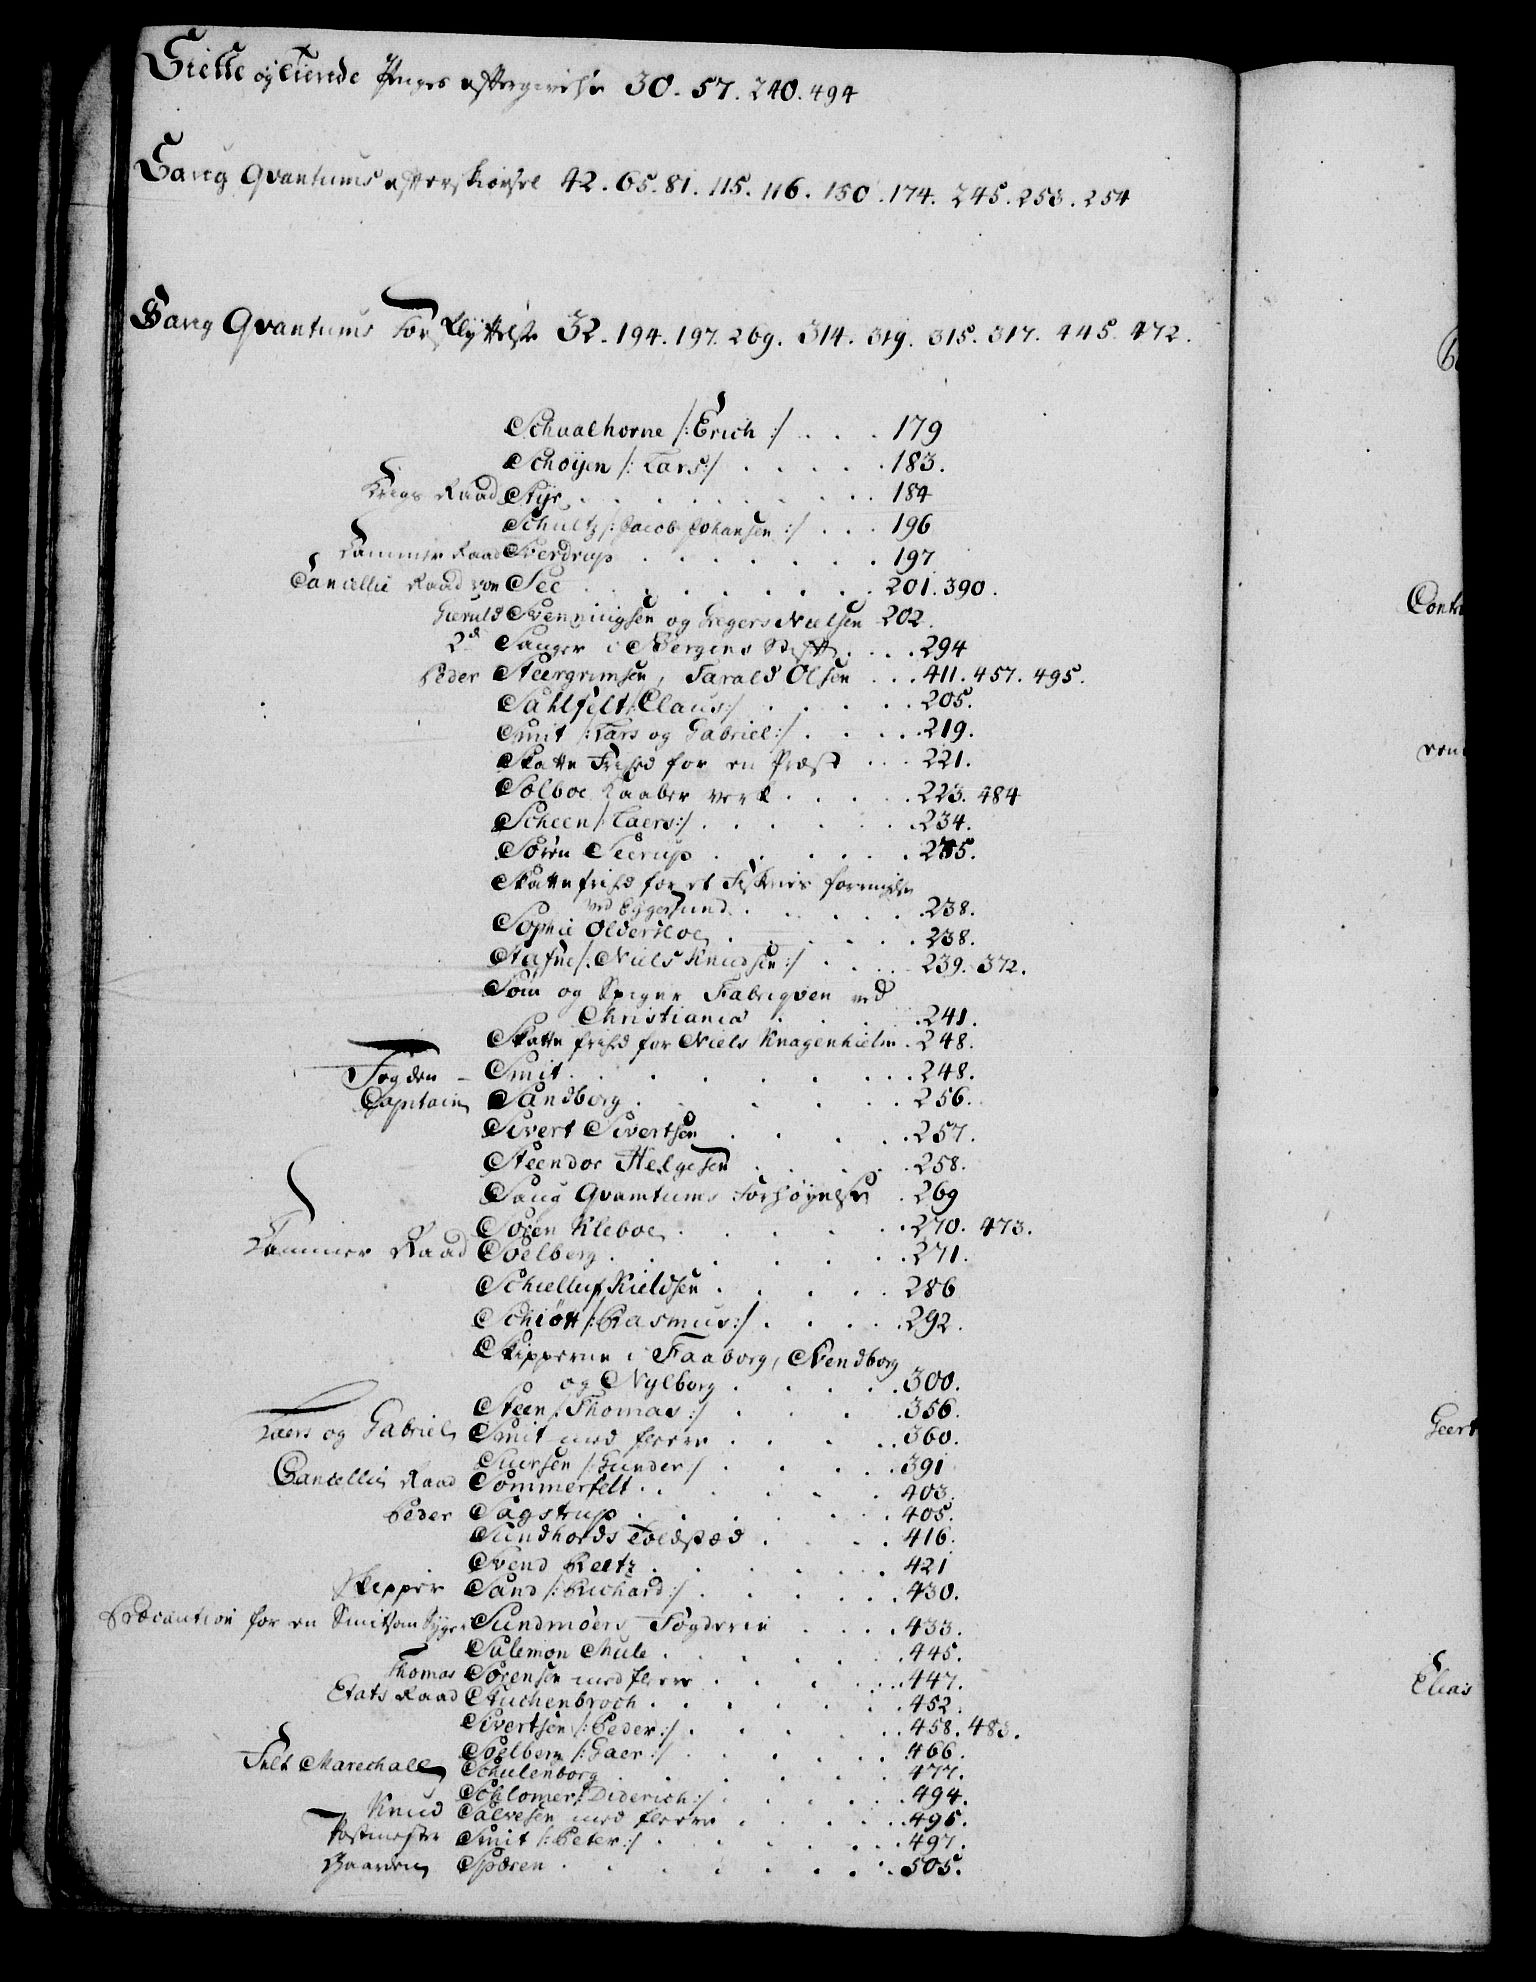 Siette og tiende Penges eftergivelse 30. 57. 240. 494
Saug Qvantums efterskiørsel 42. 65. 81. 115. 116. 150. 174. 245. 253. 254
Saug Qvantums Forflyttelse 32. 194. 197. 269. 314. 319. 315. 317. 445. 472.
Schualhorne /: Erich :/ . . . 179
Schøyen /: Lars :/ . . . . . 183.
Krigs Raad Stye . . . . . . . 184
Schultz /: Jacob Johansen :/ . . . 196
Kammer Raad Sverdrup . . . . . . . 197
Cancellie Raad von See . . . . . . . 201. 390.
Gieruld Svenningsen og Gregers Nielsen 202.
2de Sauger i Bergens Stift . . . . 294
Peder Steergrimsen, Tarald Olsen . . . 411. 457. 495.
Sahlfelt /: Claus :/ . . . . . 205.
Smit /: Lars og Gabriel :/ . . . . . 219.
Skatte Frihed for en Præst . . . 221.
Solboe Kaaber verk . . . . . 223. 484
Scheen /: Laers :/ . . . . . . 234.
Søren Seerup . . . . . 235.
Skatte frihed for et Fiskeries
ved Eggersund . . . . . 238.
Sophie Oldensloe . . . . . 238.
/: Niels Knudsen :/ . . . . 239. 372.
Søm og Spiger Fabriqven ved
Christiania . . . . 241.
Skatte frihed for Niels Knagenhielm . 248.
Fogden - Smit . . . . . . . . 248.
Capitain Sandborg . . . . . . 256.
Sivert Sivertsen . . . . . 257.
Steendor Helgesen . . . . 258.
Saug Qvantums Forhøyelse . 269
Søren Kleboe . . . . . . 270. 473.
Kammer Raad Soelberg . . . . . . 271.
Schielluf Kieldsen . . . . . 286
Schiøtt /: Rasmus :/ . . . . . 292.
Skipperne i Faaborg, Svendborg
og Nyborg . . . . . 300.
Steen /: Thomas :/ . . . . 356.
Laers og Gabriel Smit med fleere . . . . . 360.
Siversen /: Gunder :/ . . . . . 391
Cancellie Raad Sommerfelt . . . . . . 403.
Peder Sagstrup . . . . . . 405.
Sundhords Toldsted . . . . 416.
Svend Reetz . . . . . . 421
Skipper Sand /: Richard :/ . . . . . . 430.
Præcaution for en Smitsom Syge i Sundmøers Fogderie . . . . 433.
Salemon Mule . . . . . . 445.
Thomas Sørensen med fleere . . . . . 447.
Etats Raad Stuchenbroch . . . . . . 452.
Sivertsen /: Peder :/ . . . . . . 458. 483.
Soelberg /: Gaer :/ . . . . . . 466.
Felt Marechall Schulenborg . . . . . . 477.
Schlomer /: Diderich :/ . . . . . 494.
Knud Salvesen med fleere . . . . . 495.
Postmester Smit /: Peter :/ . . . . . 497.
Spæren . . . . . . . 505.
Contr
ven
Geert
Elias